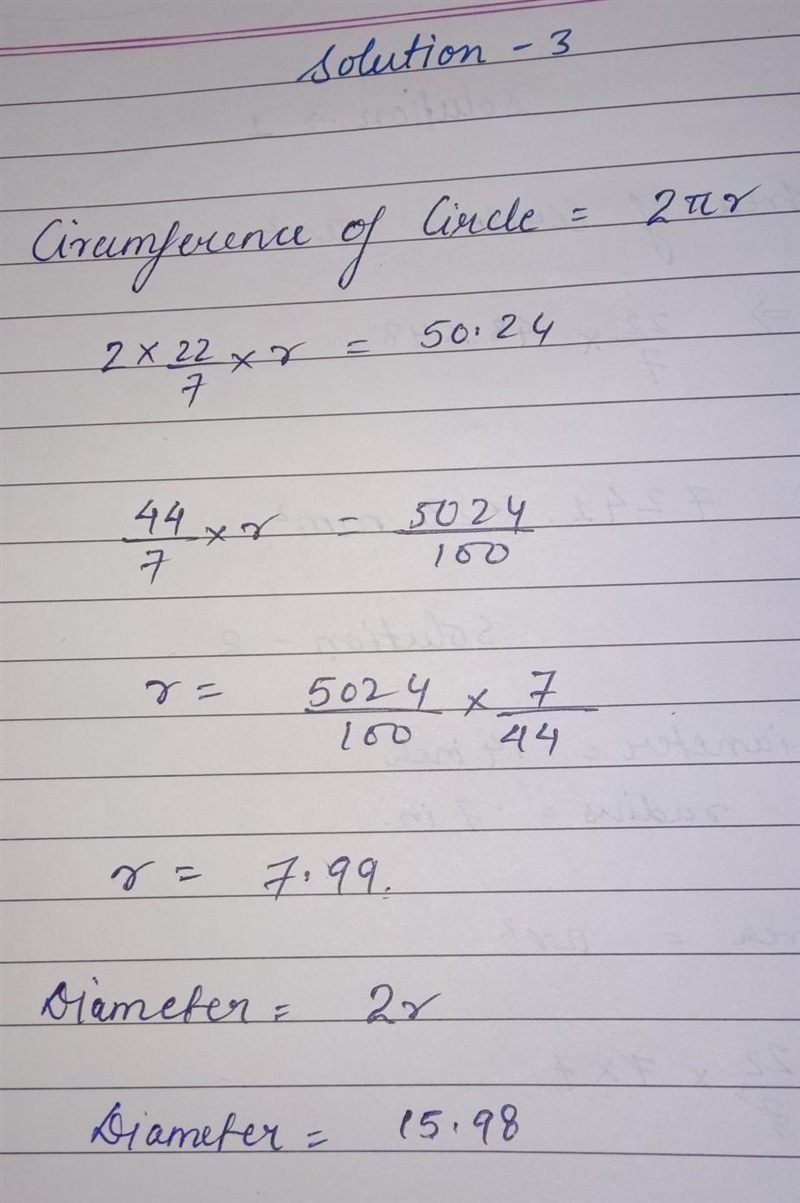 Solution - 3
Circumference of Circle = 2πr
2 × 22/7 × r = 50.24
44/7 × r = 5024/100
r = 5024/100 × 7/44
r = 7.99.
Diameter = 2r
Diameter = 15.98